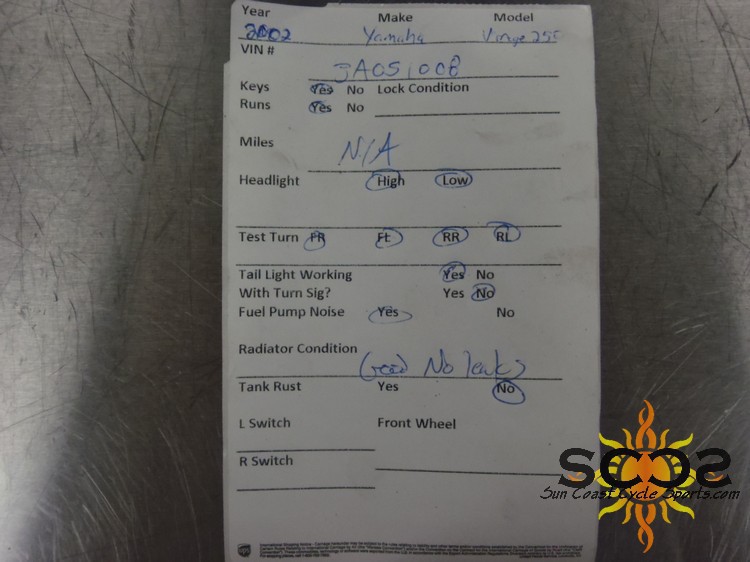 Year Make Model
2002 Yamaha
VIN #
3A051008
Keys Yes No Lock Condition
Runs Yes No
Miles N/A
Headlight High Low
Test Turn FR FL RR RL
Tail Light Working Yes No
With Turn Sig? Yes No
Fuel Pump Noise Yes No
Radiator Condition Good No leaks
Tank Rust Yes No
L Switch Front Wheel
R Switch
SCCS
Sun Coast Cycle Sports.com